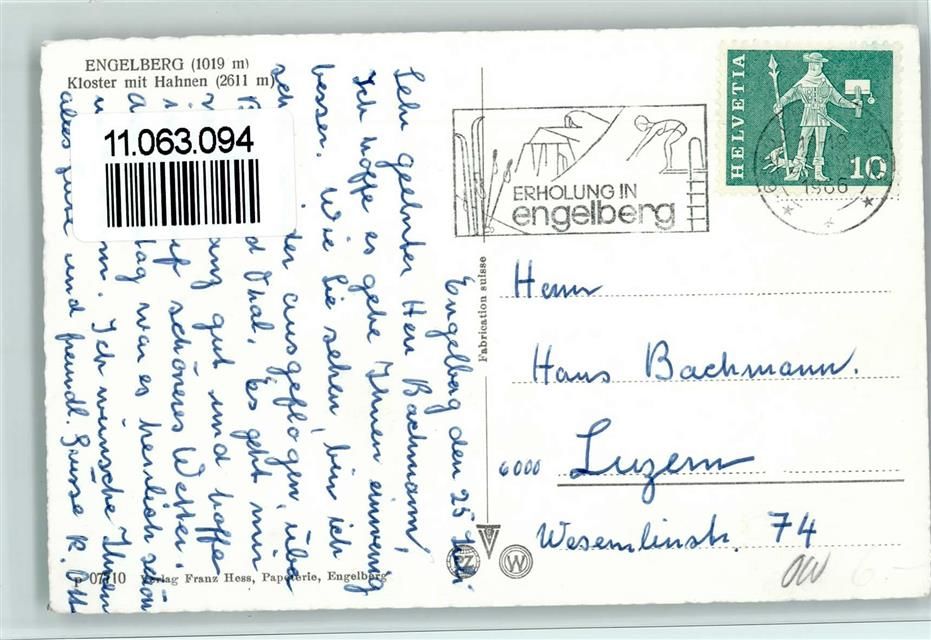 ENGELBERG (1019 m)
Kloster mit Hahnen (2611 m)
11.063.094
Engelberg den 25
Sehr geehrter Herr Bachmann,
Ich hoffe es gehe Ihnen einwenig
besser. Wie Sie sehen, bin ich
ausgeflogen, über
Es geht mir
gut und hoffe
auf schönes Wetter.
war es herrlich schön
Ich wünsche Ihnen
alles Gute und freundl. Grüsse R. Ott
07710 Verlag Franz Hess, Papeterie, Engelberg
Fabrication suisse
ERHOLUNG IN
engelberg
HELVETIA
10
1966
Herrn
Hans Bachmann.
6000 Luzern
Wesemlinstr. 74
W
OW 6.-